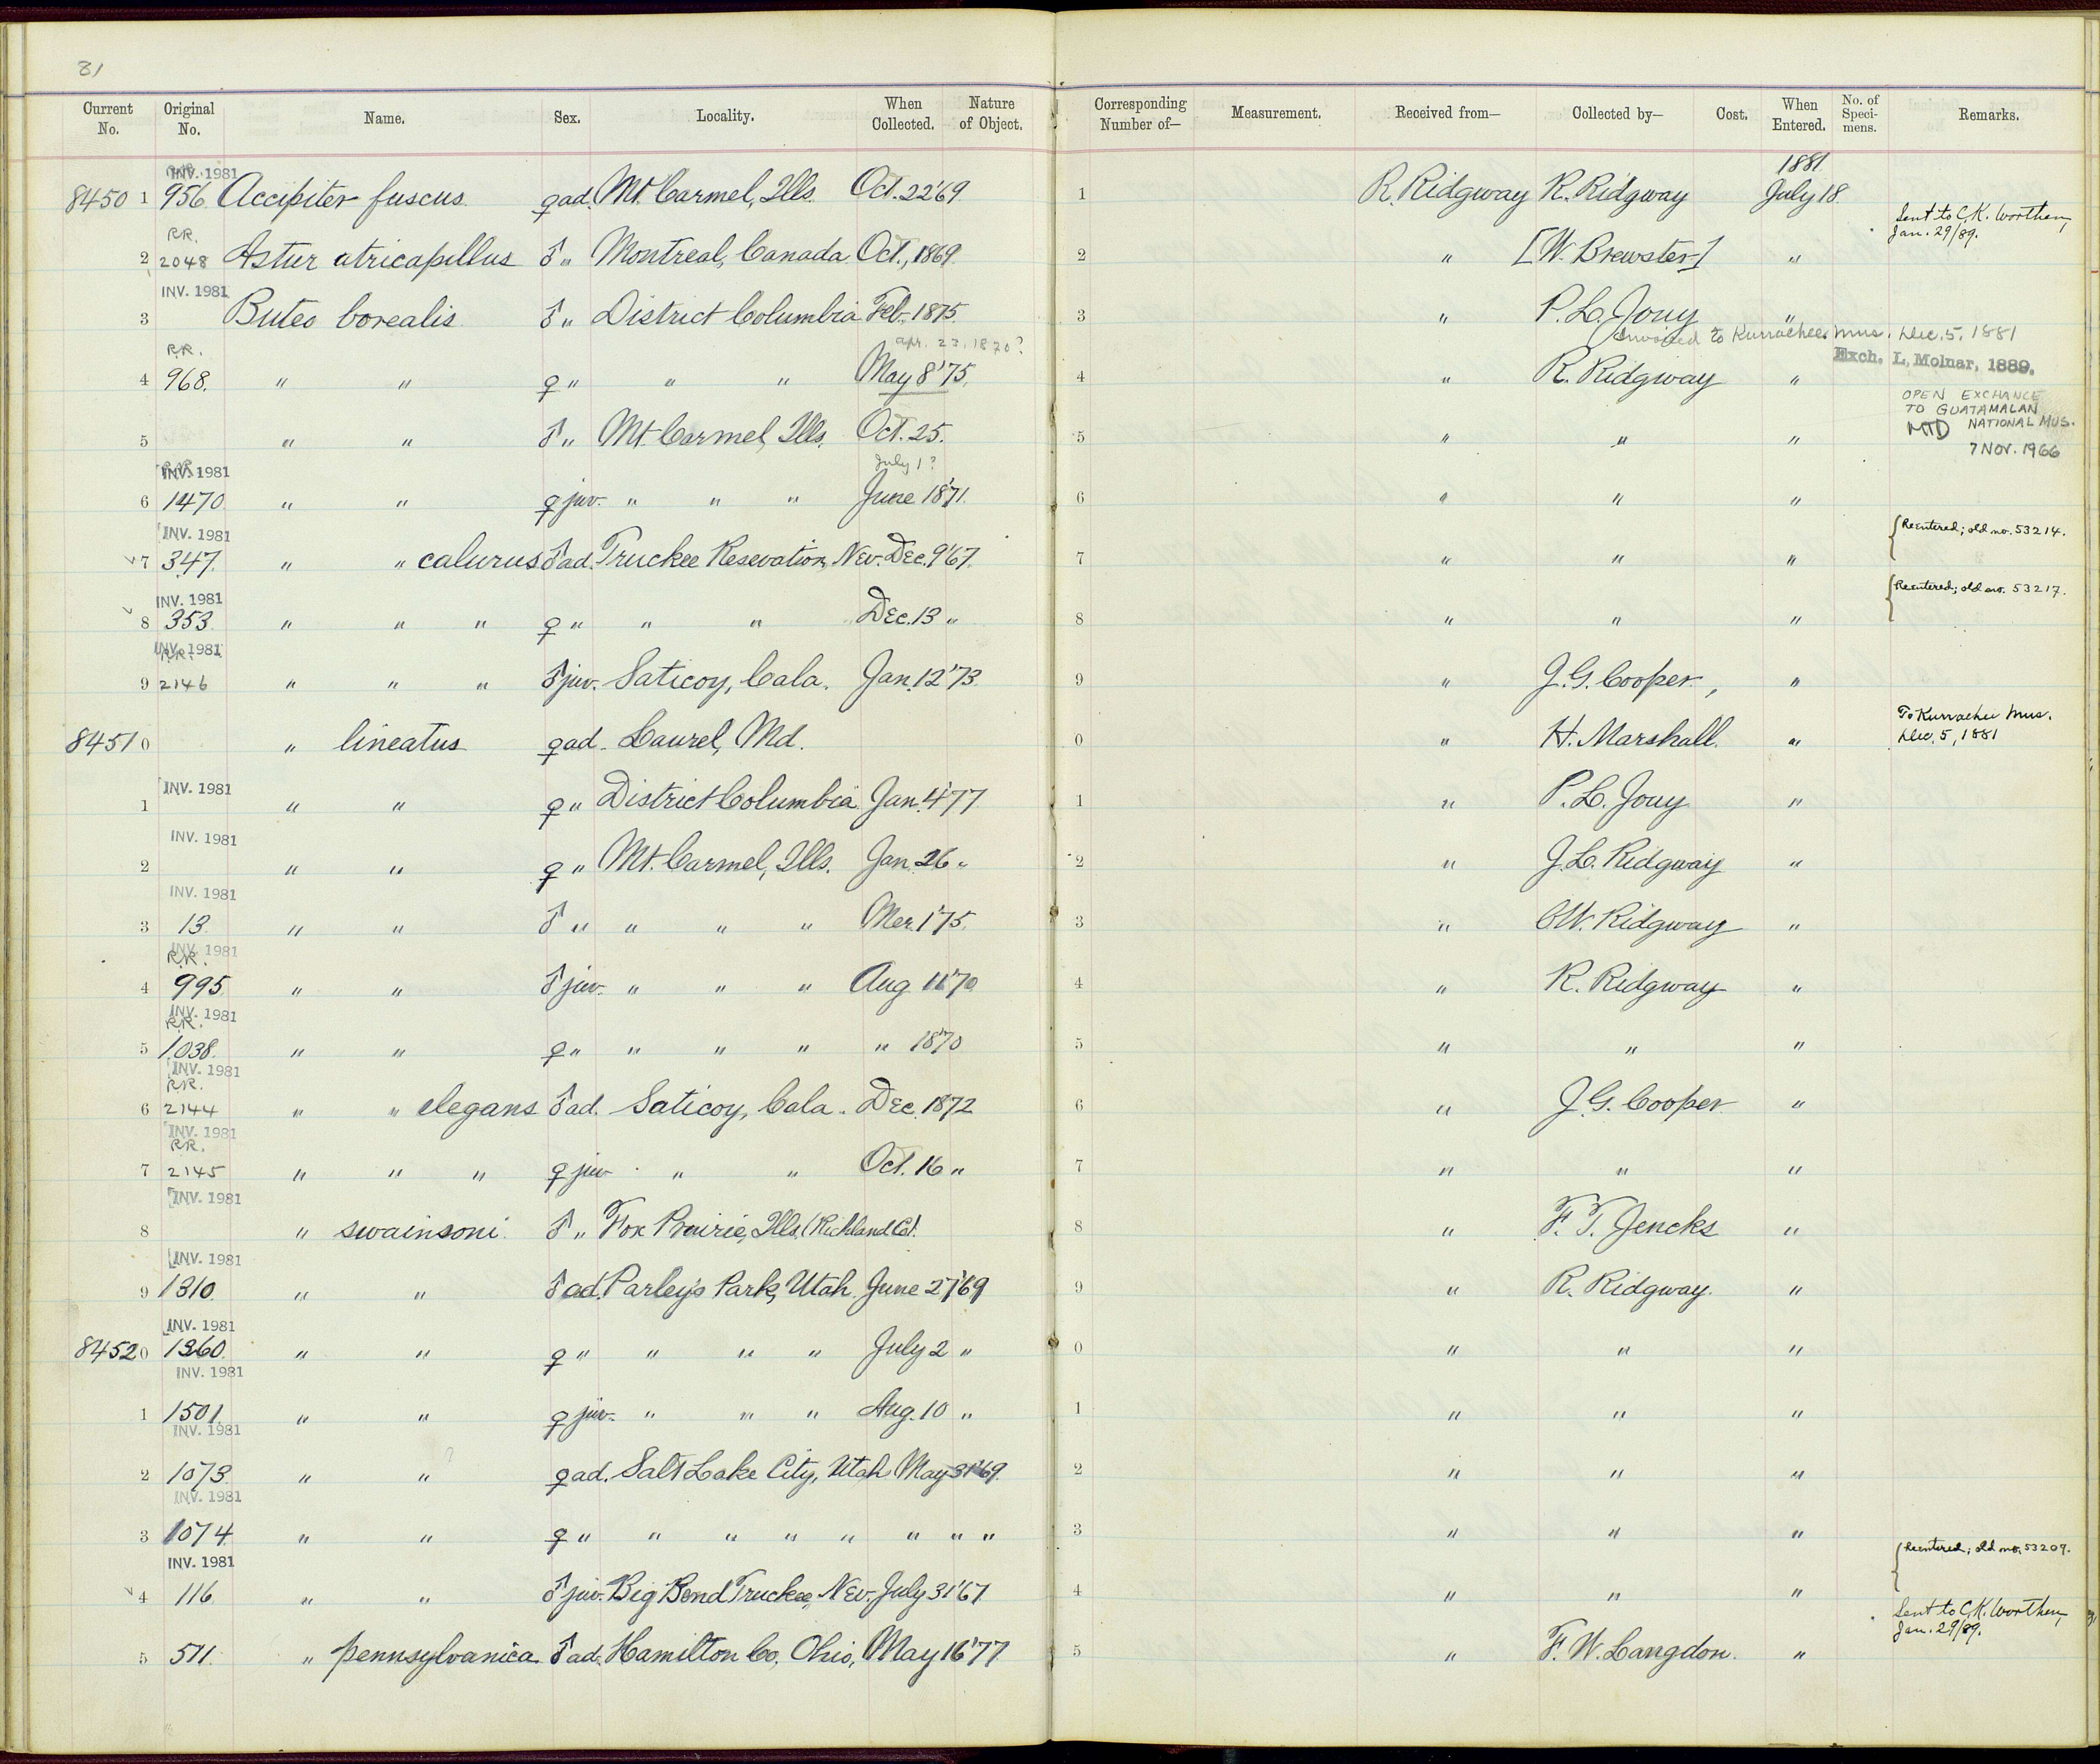 81
Current No. Original No. Name. Sex. Locality. When Collected. Nature of Object. Corresponding Number of— Measurement. Received from— Collected by— Cost. When Entered. No. of Specimens. Remarks.
INV. 1981 1881
84501 956 Accipiter fuscus ♀ ad. Mt. Carmel, Ills. Oct. 22 '69 1 R. Ridgway R. Ridgway July 18
R.R. Sent to C.K. Worthen, Jan. 29/89.
2 2048 Astur atricapillus ♂ " Montreal, Canada Oct., 1869 2 " [W. Brewster] "
INV. 1981
3 Buteo borealis ♂ " District Columbia Feb. 1875 3 " P. L. Jouy "
Apr. 23, 1870? Invoiced to Kurrachee Mus. Dec. 5, 1881
R.R. Exch. L. Molnar, 1889.
4 968. " " ♀ " " " May 8 '75. 4 " R. Ridgway "
OPEN EXCHANGE
TO GUATAMALAN
NATIONAL MUS.
5 " " ♂ " Mt. Carmel, Ills. Oct. 25. 5 " " "
7 NOV. 1966
INV. 1981 July 1?
6 1470 " " ♀ juv. " " " June 1871. 6 " " "
INV. 1981 Reentered; old no. 53214.
7 347. " " calurus ♂ ad. Truckee Resevation, Nev. Dec. 9 '67. 7 " " "
INV. 1981 Reentered; old no. 53217.
8 353 " " " ♀ " " " Dec. 13 " 8 " " "
INV. 1981
R.R.
9 2146 " " " ♂ juv. Saticoy, Cala. Jan. 12 '73. 9 " J. G. Cooper, "
To Kurrachee Mus. Dec. 5, 1881
84510 " lineatus ♀ ad. Laurel, Md. 0 " H. Marshall. "
INV. 1981
1 " " ♀ " District Columbia Jan. 4 '77 1 " P. L. Jouy "
INV. 1981
2 " " ♀ " Mt. Carmel, Ills. Jan. 26 " 2 " J. L. Ridgway "
INV. 1981
3 13. " " ♂ " " " " Mar. 1 '75. 3 " C W. Ridgway "
INV. 1981
R.R.
4 995 " " ♂ juv. " " " Aug 11 '70 4 " R. Ridgway "
INV. 1981
R.R.
5 1038. " " ♀ " " " " " 1870 5 " " "
INV. 1981
R.R.
6 2144 " " elegans ♂ ad. Saticoy, Cala. Dec. 1872 6 " J. G. Cooper "
INV. 1981
R.R.
7 2145 " " " ♀ juv " " Oct. 16 " 7 " " "
INV. 1981
8 " swainsoni ♂ " Fox Prairie, Ills. (Richland Co). 8 " F. T. Jencks "
INV. 1981
9 1310. " " ♂ ad. Parley's Park, Utah. June 27 '69 9 " R. Ridgway. "
INV. 1981
84520 1360 " " ♀ " " " " July 2 " 0 " " "
INV. 1981
1 1501. " " ♀ juv. " " " Aug. 10 " 1 " " "
INV. 1981
?
2 1073 " " ♀ ad. Salt Lake City, Utah May 31 '69. 2 " " "
INV. 1981
3 1074 " " ♀ " " " " " " " " 3 " " "
INV. 1981 Reentered; old no. 53209.
4 116 " " ♂ juv. Big Bend Truckee, Nev. July 31 '67 4 " " "
Sent to C.K. Worthen, Jan. 29/89.
5 511. " pennsylvanica ♂ ad. Hamilton Co. Ohio, May 16 '77 5 " F. W. Langdon. "